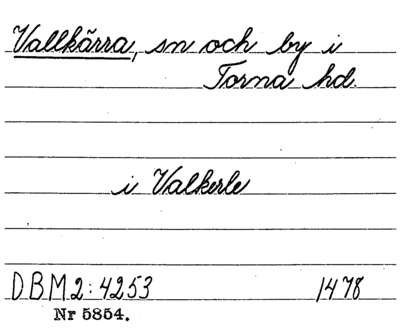 Vallkärra, sn och by i
Torna hd.
i Valkerle
DBM2:4253 1478
Nr 5854.